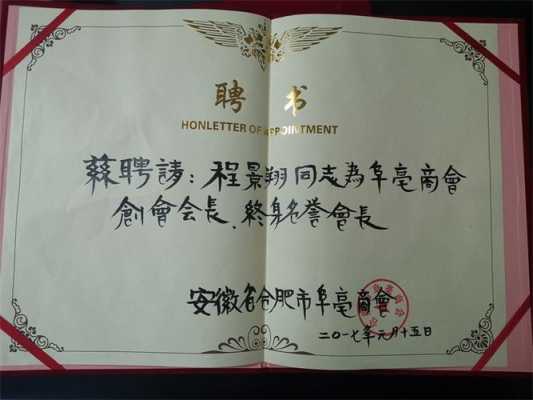 聘书
HONLETTER OF APPOINTMENT
蘇聘請：程景翔同志為阜亳商會
創會会长、終身名誉會长
安徽省合肥市阜亳商會
二〇一七年元月十五日